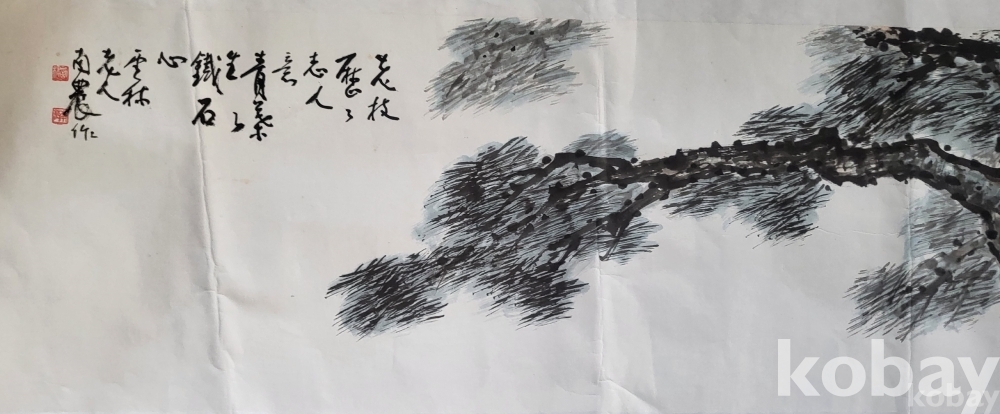 老枝
歷〻
志人
意
青葉
鐵石
心
雲林
老人
南農作
kobay
kobay